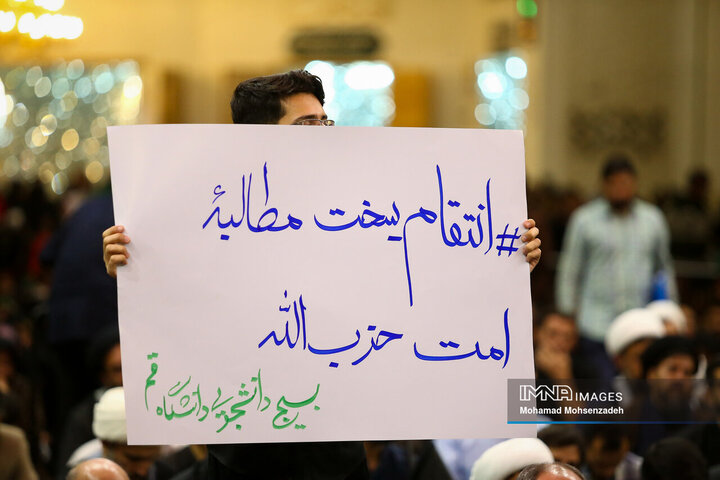 #انتقام سخت مطالبهٔ
امت حزب الله
بسیج دانشجویی دانشگاه قم
IMNA IMAGES
Mohamad Mohsenzadeh